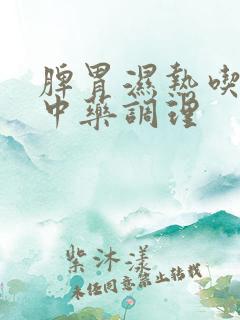 脾胃濕熱喫
中藥調理
紫沐漾
未经同意禁止转载